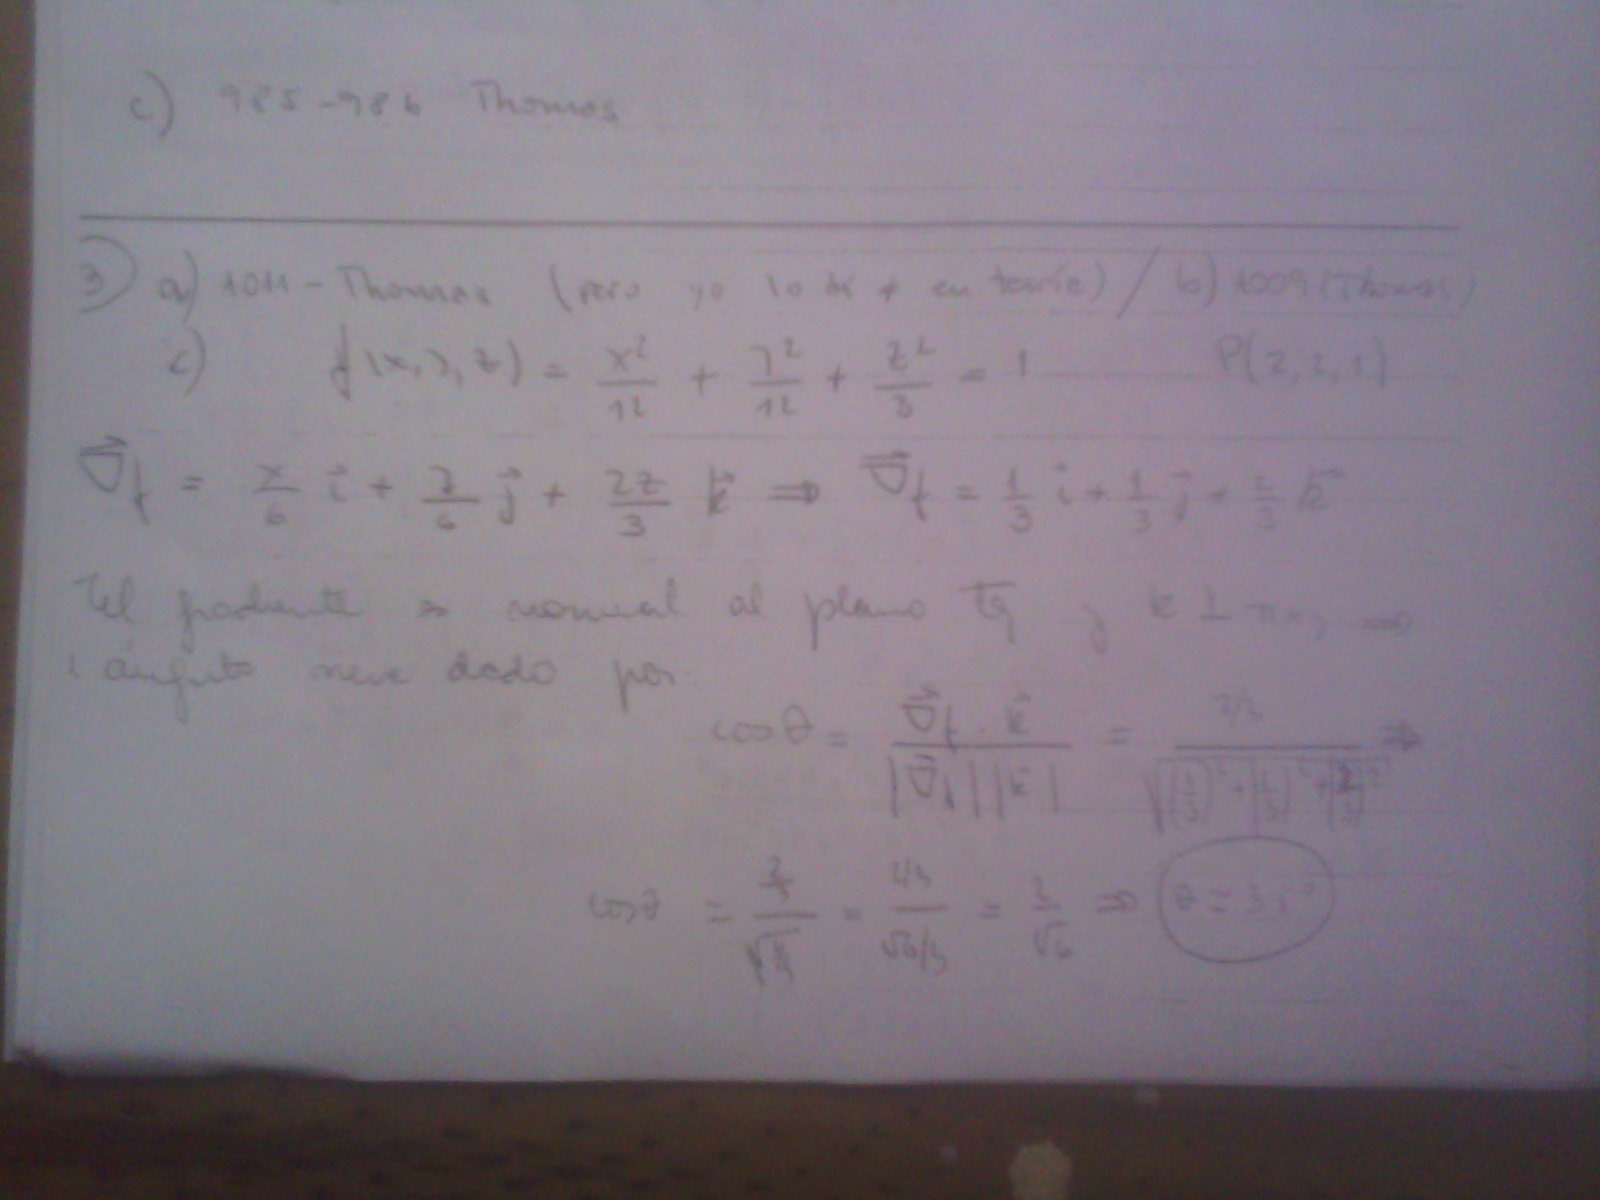 c) 985-986 Thomas
3) a) 1011 - Thomas (pero yo lo di + en teoría) / b) 1009 (Thomas)
c) f(x,y,z) = x²/12 + y²/12 + z²/3 = 1 P(2,2,1)
∇f = x/6 i + y/6 j + 2z/3 k ⇒ ∇f = 1/3 i + 1/3 j + 2/3 k
El gradiente es normal al plano Tg y k ⊥ ⇒
ángulo viene dado por
cos θ = ∇f · k / |∇f| |k| = 2/3 / √((1/3)² + (1/3)² + (2/3)²) ⇒
cos θ = = 2/3 / √6/3 = 2/√6 ⇒ θ = 35°